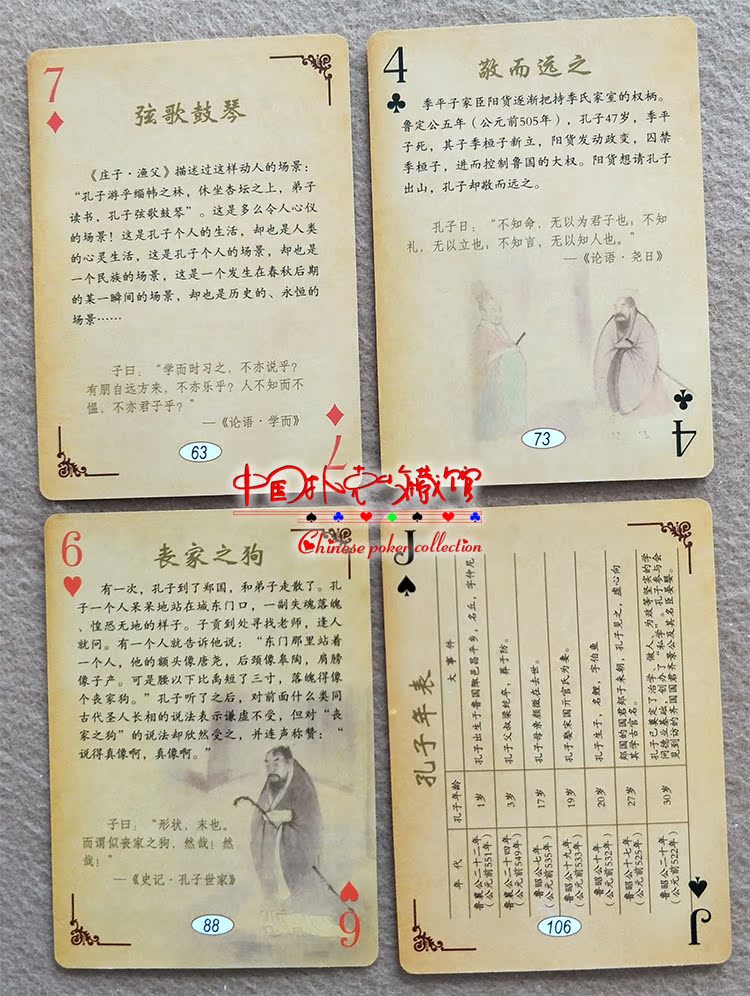 7
弦歌鼓琴
《庄子·渔父》描述过这样动人的场景：
“孔子游乎缁帏之林，休坐杏坛之上，弟子
读书，孔子弦歌鼓琴”。这是多么令人心仪
的场景！这是孔子个人的生活，却也是人类
的心灵生活，这是孔子个人的场景，却也是
一个民族的场景，这是一个发生在春秋后期
的某一瞬间的场景，却也是历史的、永恒的
场景……
子曰：“学而时习之，不亦说乎？
有朋自远方来，不亦乐乎？人不知而不
愠，不亦君子乎？”
—《论语·学而》
63
7
4
敬而远之
季平子家臣阳货逐渐把持季氏家室的权柄。
鲁定公五年（公元前505年），孔子47岁，季平
子死，其子季桓子新立，阳货发动政变，囚禁
季桓子，进而控制鲁国的大权。阳货想请孔子
出山，孔子却敬而远之。
孔子曰：“不知命，无以为君子也；不知
礼，无以立也；不知言，无以知人也。”
—《论语·尧曰》
73
4
中国扑克收藏馆
Chinese poker collection
6
丧家之狗
有一次，孔子到了郑国，和弟子走散了。孔
子一个人呆呆地站在城东门口，一副失魂落魄
、惶恐无地的样子。子贡到处寻找老师，逢人
就问。有一个人就告诉他说：“东门那里站着
一个人，他的额头像唐尧，后颈像皋陶，肩膀
像子产。可是腰以下比禹短了三寸，落魄得像
个丧家狗。”孔子听了之后，对前面什么类同
古代圣人长相的说法表示谦虚不受，但对“丧
家之狗”的说法却欣然受之，并连声称赞：“
说得真像啊，真像啊。”
子曰：“形状，末也。
而谓似丧家之狗，然哉！然
哉！”
—《史记·孔子世家》
88
6
J
孔子年表
年 代 孔子年龄 大事件
鲁襄公二十二年（公元前551年） 1岁 孔子出生于鲁国陬邑昌平乡，名丘，字仲尼
鲁襄公二十四年（公元前549年） 3岁 孔子父叔梁纥卒，葬于防。
鲁昭公七年（公元前535年） 17岁 孔子母亲颜徵在去世。
鲁昭公十九年（公元前533年） 19岁 孔子娶宋国亓官氏为妻。
鲁昭公十年（公元前532年） 20岁 孔子生子，名鲤，字伯鱼
鲁昭公十七年（公元前525年） 27岁 郯国的国君郯子来朝，孔子见之，虚心向
其学古官名。
鲁昭公二十年（公元前522年） 30岁 孔子已奠定了治学、做人、为政等坚实的学
问德业基础，创办了“私学”。孔子参与会
见到访的齐国国君齐景公及其名臣晏婴。
106
J